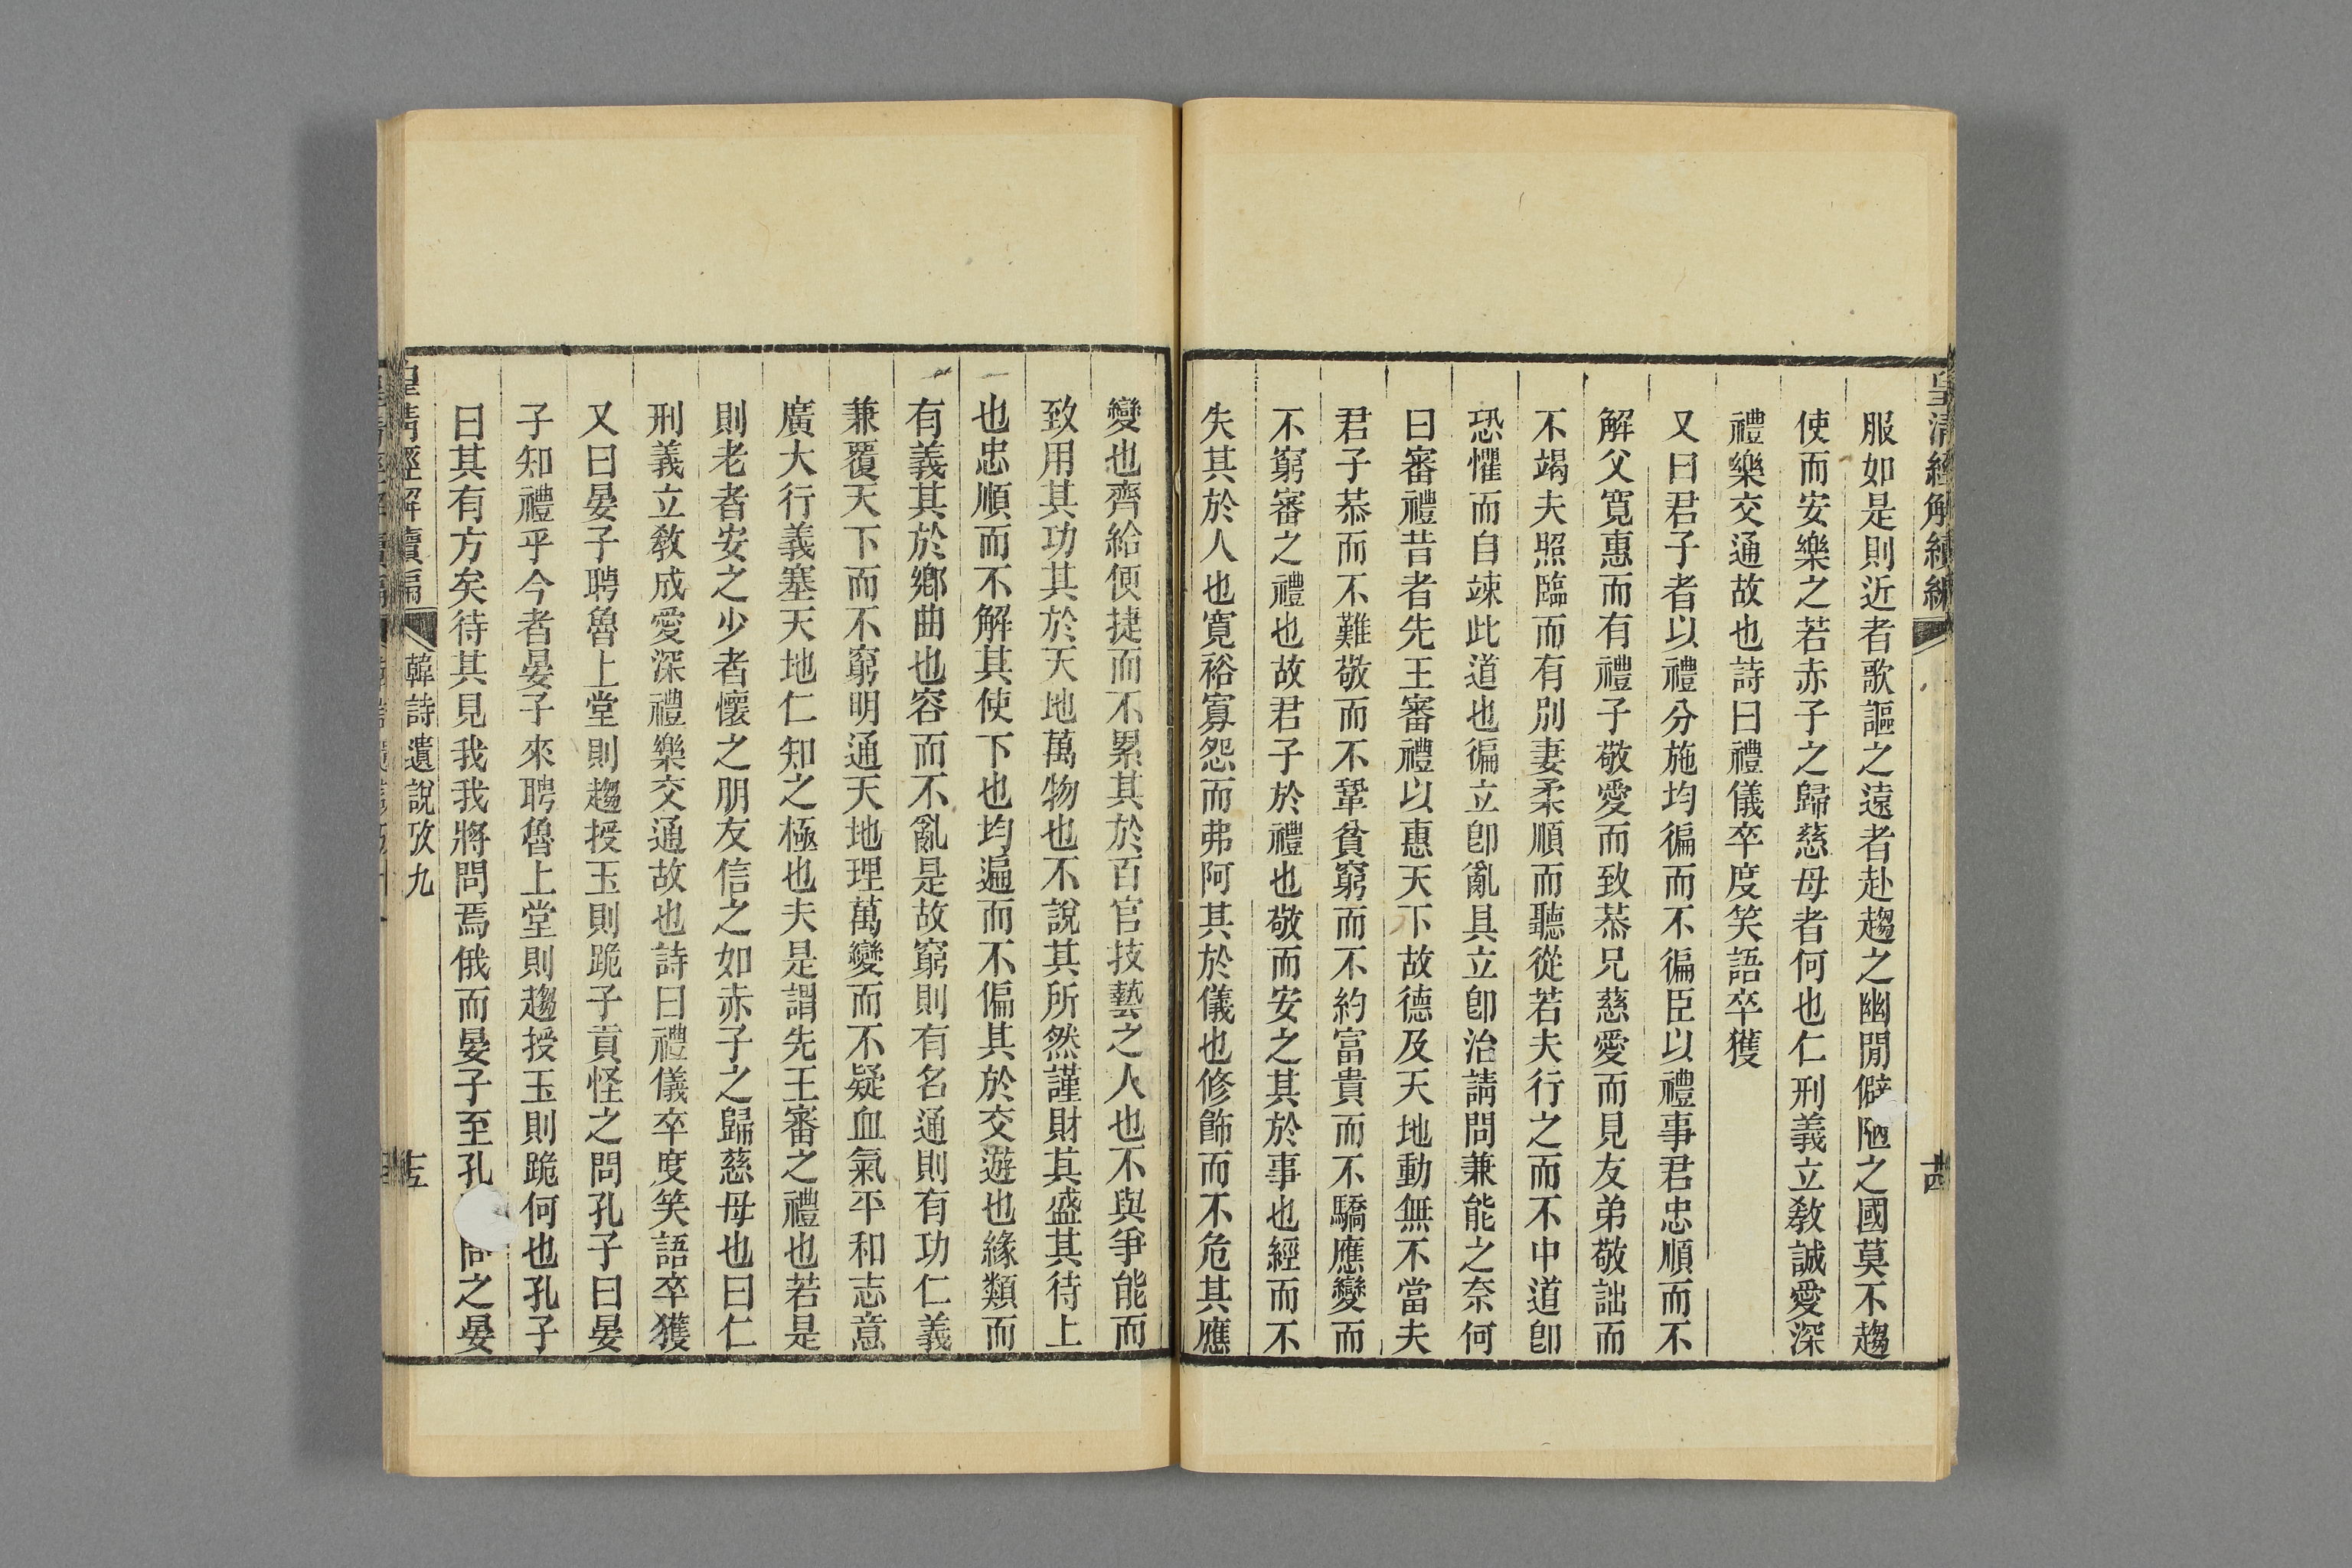 皇清經解續編
十四
服如是則近者歌謳之遠者赴趨之幽閒僻陋之國莫不趨
使而安樂之若赤子之歸慈母者何也仁刑義立教誠愛深
禮樂交通故也詩曰禮儀卒度笑語卒獲
又曰君子者以禮分施均徧而不徧臣以禮事君忠順而不
解父寬惠而有禮子敬愛而致恭兄慈愛而見友弟敬詘而
不竭夫照臨而有別妻柔順而聽從若夫行之而不中道卽
恐懼而自竦此道也徧立卽亂具立卽治請問兼能之奈何
曰審禮昔者先王審禮以惠天下故德及天地動無不當夫
君子恭而不難敬而不鞏貧窮而不約富貴而不驕應變而
不窮審之禮也故君子於禮也敬而安之其於事也經而不
失其於人也寬裕寡怨而弗阿其於儀也修飾而不危其應
變也齊給便捷而不累其於百官技藝之人也不與爭能而
致用其功其於天地萬物也不說其所然謹財其盛其待上
也忠順而不解其使下也均遍而不偏其於交遊也緣類而
有義其於鄉曲也容而不亂是故窮則有名通則有功仁義
兼覆天下而不窮明通天地理萬變而不疑血氣平和志意
廣大行義塞天地仁知之極也夫是謂先王審之禮也若是
則老者安之少者懷之朋友信之如赤子之歸慈母也曰仁
刑義立教成愛深禮樂交通故也詩曰禮儀卒度笑語卒獲
又曰晏子聘魯上堂則趨授玉則跪子貢怪之問孔子曰晏
子知禮乎今者晏子來聘魯上堂則趨授玉則跪何也孔子
曰其有方矣待其見我我將問焉俄而晏子至孔問之晏
皇清經解續編
韓詩遺說攷九
十五